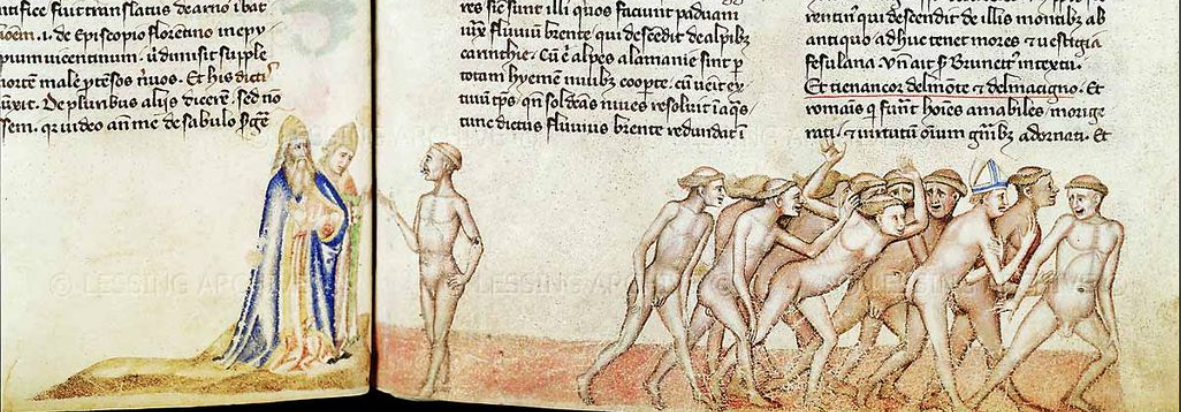 ntifice fuit translatus de arno i bat
.i. de Episcopio florētino in epy
pium vicentinum. u dimisit supple
morte male ptēsos nuos. Et his dictis
De pluribus aliis dicerē. sed nō
ssem. qr video
res sic sunt illi quos faciunt paduani
iux fluuiū brente qui descēdit de alpibz
carinthie. Cū ē alpes alamanie sint p
totam hyemē niuibz coopte. cū ueīt ex
tiuū tps. qn̄ sol deas niues resoluit ī aqs
tunc dictus fluuius brente redundat ī
rentinꝰ qui descendit de illis montibz ab
antiquo adhuc tenet mores ⁊ uestigia
fesulana. Vn̄ ait
Et tienancor delmōte ⁊ delmacigno. Et
romaīs q fūnt hoīes amabiles morige
rati. ⁊ uirtutū oīum gnībz adornati. Et
© LESSING ARCHIVE